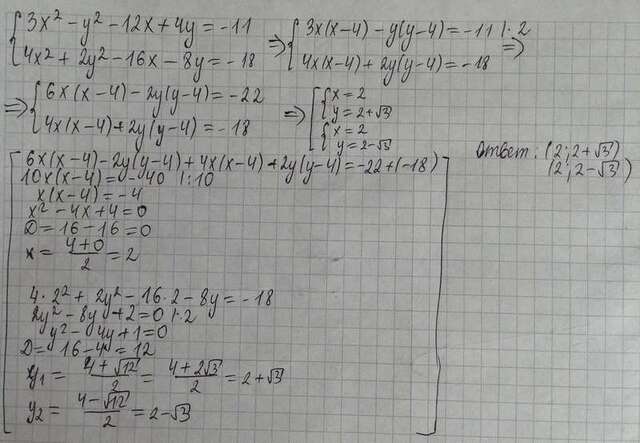 { 3x² - y² - 12x + 4y = -11
4x² + 2y² - 16x - 8y = -18
=> { 3x(x-4) - y(y-4) = -11 |·2
4x(x-4) + 2y(y-4) = -18
=>
=> { 6x(x-4) - 2y(y-4) = -22
4x(x-4) + 2y(y-4) = -18
=> [ { x = 2
y = 2+√3
{ x = 2
y = 2-√3
Ответ: (2; 2+√3)
(2; 2-√3)
[ 6x(x-4) - 2y(y-4) + 4x(x-4) + 2y(y-4) = -22 + (-18) ]
10x(x-4) = -40 |:10
x(x-4) = -4
x² - 4x + 4 = 0
D = 16 - 16 = 0
x = (4+0)/2 = 2
4·2² + 2y² - 16·2 - 8y = -18
2y² - 8y + 2 = 0 |·2
y² - 4y + 1 = 0
D = 16 - 4 = 12
y₁ = (4+√12)/2 = (4+2√3)/2 = 2+√3
y₂ = (4-√12)/2 = 2-√3